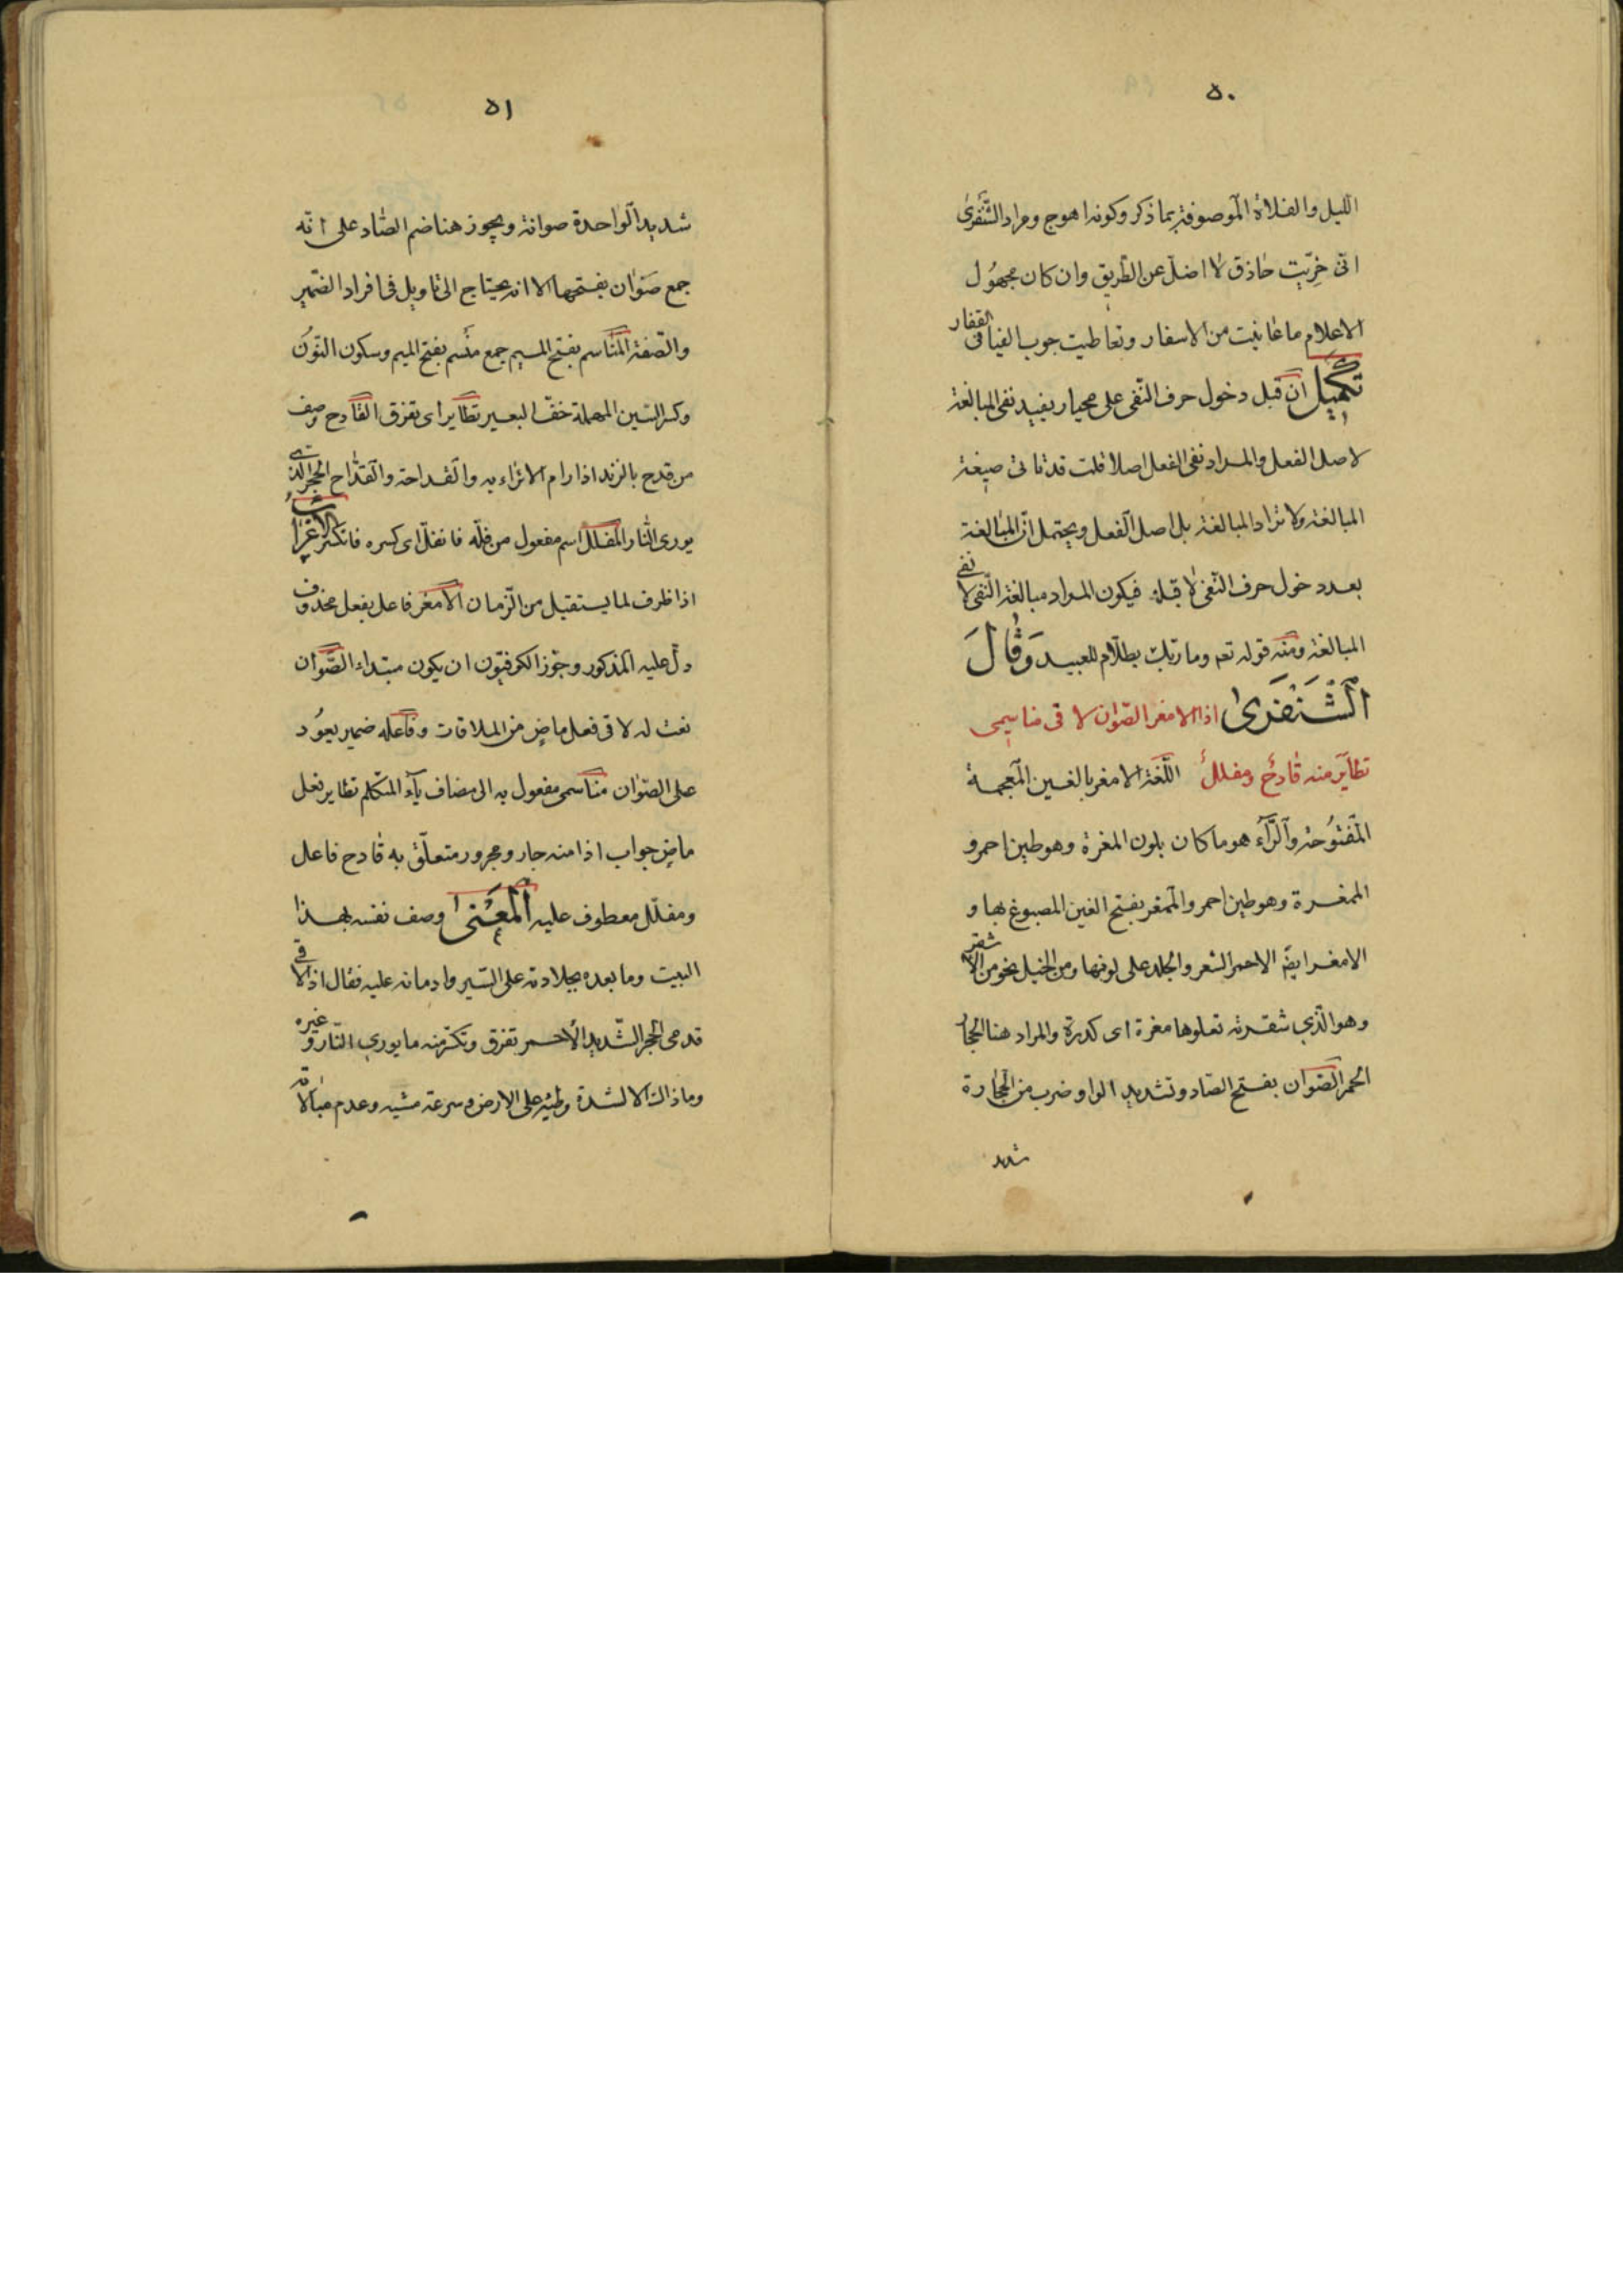 ٥٠
الليل والفلاة الموصوفة بما ذكر وكونه اهوج ومراد الشنفرى
انى خِرّيت حاذق لا اضلّ عن الطريق وان كان مجهُول
الاعلام ما عانيت من الاسفار وتعاطيت جوب الفيافى القفار
تكميل ان قيل دخول حرف النّفى على محيار يفيد نفى المبالغة
لا صل الفعل والمراد نفى الفعل اصلا قلت قد تاتى صيغة
المبالغة ولا تراد المبالغة بل اصل الفعل ويحتمل انّ المبالغة
بعد دخول حرف النّفى لا قبله فيكون المراد مبالغة النّفى لا نفى
المبالغة ومنه قوله تعم وما ربّك بظلّام للعبيد وَقٰالَ
الشَّنْفَرىٰ اذا الامغر الصّوٰان لاقى مناسِمى
تطايَر منه قادحٌ ومفللٌ اللّغة الامغر بالغين المعجمة
المفتوُحة والرّآء هو ما كان بلون المغرة وهو طين احمر و
الممغرة وهو طين احمر والممغر بفتح الغين المصبوغ بها و
الامغر ايضً الاحمر الشعر والجلد على لونها ومن الخيل نحو من الاشقر
وهو الّذي شقرته تعلوها مغرة اى كدرة والمراد هنا الحجار
الحمر الصّوان بفتح الصّاد وتشديد الواو ضرب من الحجٰارة
شديد
٥١
شديد الواحدة صوانة ويجوز هنا ضم الصّاد على انّه
جمع صَوٰان بفتحها الا انه يحتاج الى تاويل فى افراد الضّمير
والصّفة المناسم بفتح الميم جمع منسم بفتح الميم وسكون النّوُن
وكسر السّين المهملة خفّ البعير تطاير اى تفرق القادح وصف
من قدح بالزند اذا رام الائراء به والقداحة والقدّاح الحجر الذى
يورى النّار المفلل اسم مفعول من فلّه فانفلّ اى كسره فانكسر الاعراب
اذا ظرف لما يستقبل من الزّمان الامغر فاعل بفعل محذوف
دلّ عليه المذكور وجوّز الكوفيّون ان يكون مبتداء الصّوان
نعت له لاقى فعل ماضٍ من الملاقات وفاعله ضمير يعوُد
على الصّوٰان مناسمى مفعول به الى مضاف يآء المتكلم تطاير فعل
ماضٍ جواب اذا منه جار ومجرور متعلّق به قادح فاعل
ومفلّل معطوف عليه المعنى وصف نفسه بهذا
البيت وما بعده بجلادته على السّير وادمانه عليه فقال اذا لاقى
قدمى الحجر الشّديد الأحمر تفرق وتكسّر منه ما يورى النّار وغيره
وما ذاك الا لشدة وطيه على الارض وسرعة مشيه وعدم مبالاته